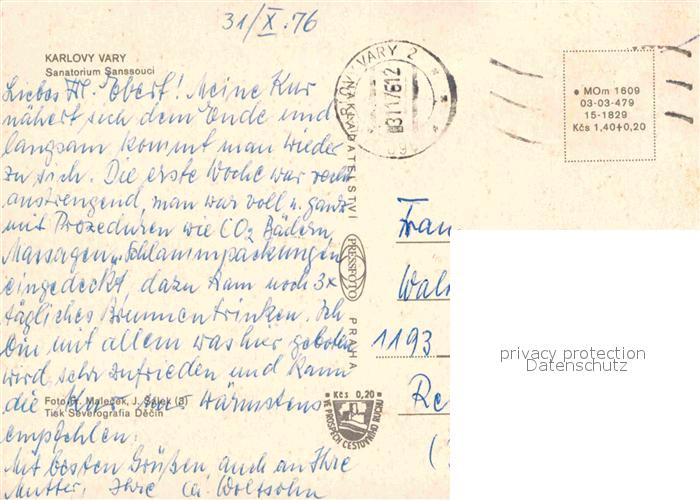 31/X.76
KARLOVY VARY
Sanatorium Sanssouci
Liebes Frl. Ebert! Meine Kur
nähert sich dem Ende und
langsam kommt man wieder
zu sich. Die erste Woche war recht
anstrengend, man war voll u. ganz
mit Prozeduren wie CO2 Bädern,
Massagen, Schlammpackungen
eingedeckt, dazu kam noch 3x
tägliches Brunnentrinken. Ich
bin mit allem was hier geboten
wird sehr zufrieden und kann
Foto Fr. Maleček, J. Sálek (3)
die Kur nur wärmstens
Tisk Severografia Děčín
empfehlen.
Mit besten Grüßen auch an Ihre
Mutter, Ihre Wolfsohn
NAKLADATELSTVI
PRESSFOTO
PRAHA
VARY 2
MOm 1609
03-03-479
15-1829
Kčs 1,40+0,20
Frau
1193
privacy protection
Datenschutz
Kčs 0,20
VE PROSPĚCH CESTOVNÍHO RUCHU